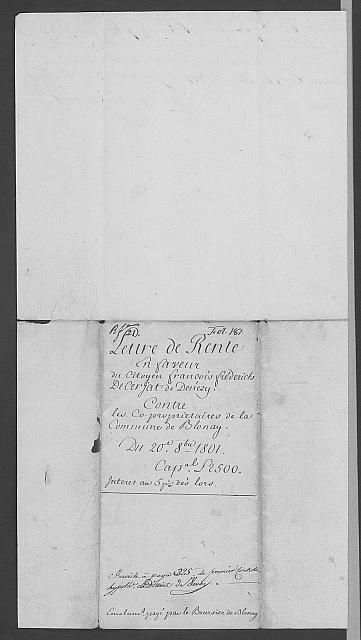 Fol. 187.
Lettre de Rente
En faveur
du Citoyen françois fréderich
De Cerjat de Denezy.
Contre
les Co-propriétaires de la
Commune de Blonay.
Du 20.e 8bre 1801.
Cap.al £ 2500.
Interet au 5 p% dès lors.
Inscrite à page 225 du premier
Emolum.t payé par le Boursier de Blonay